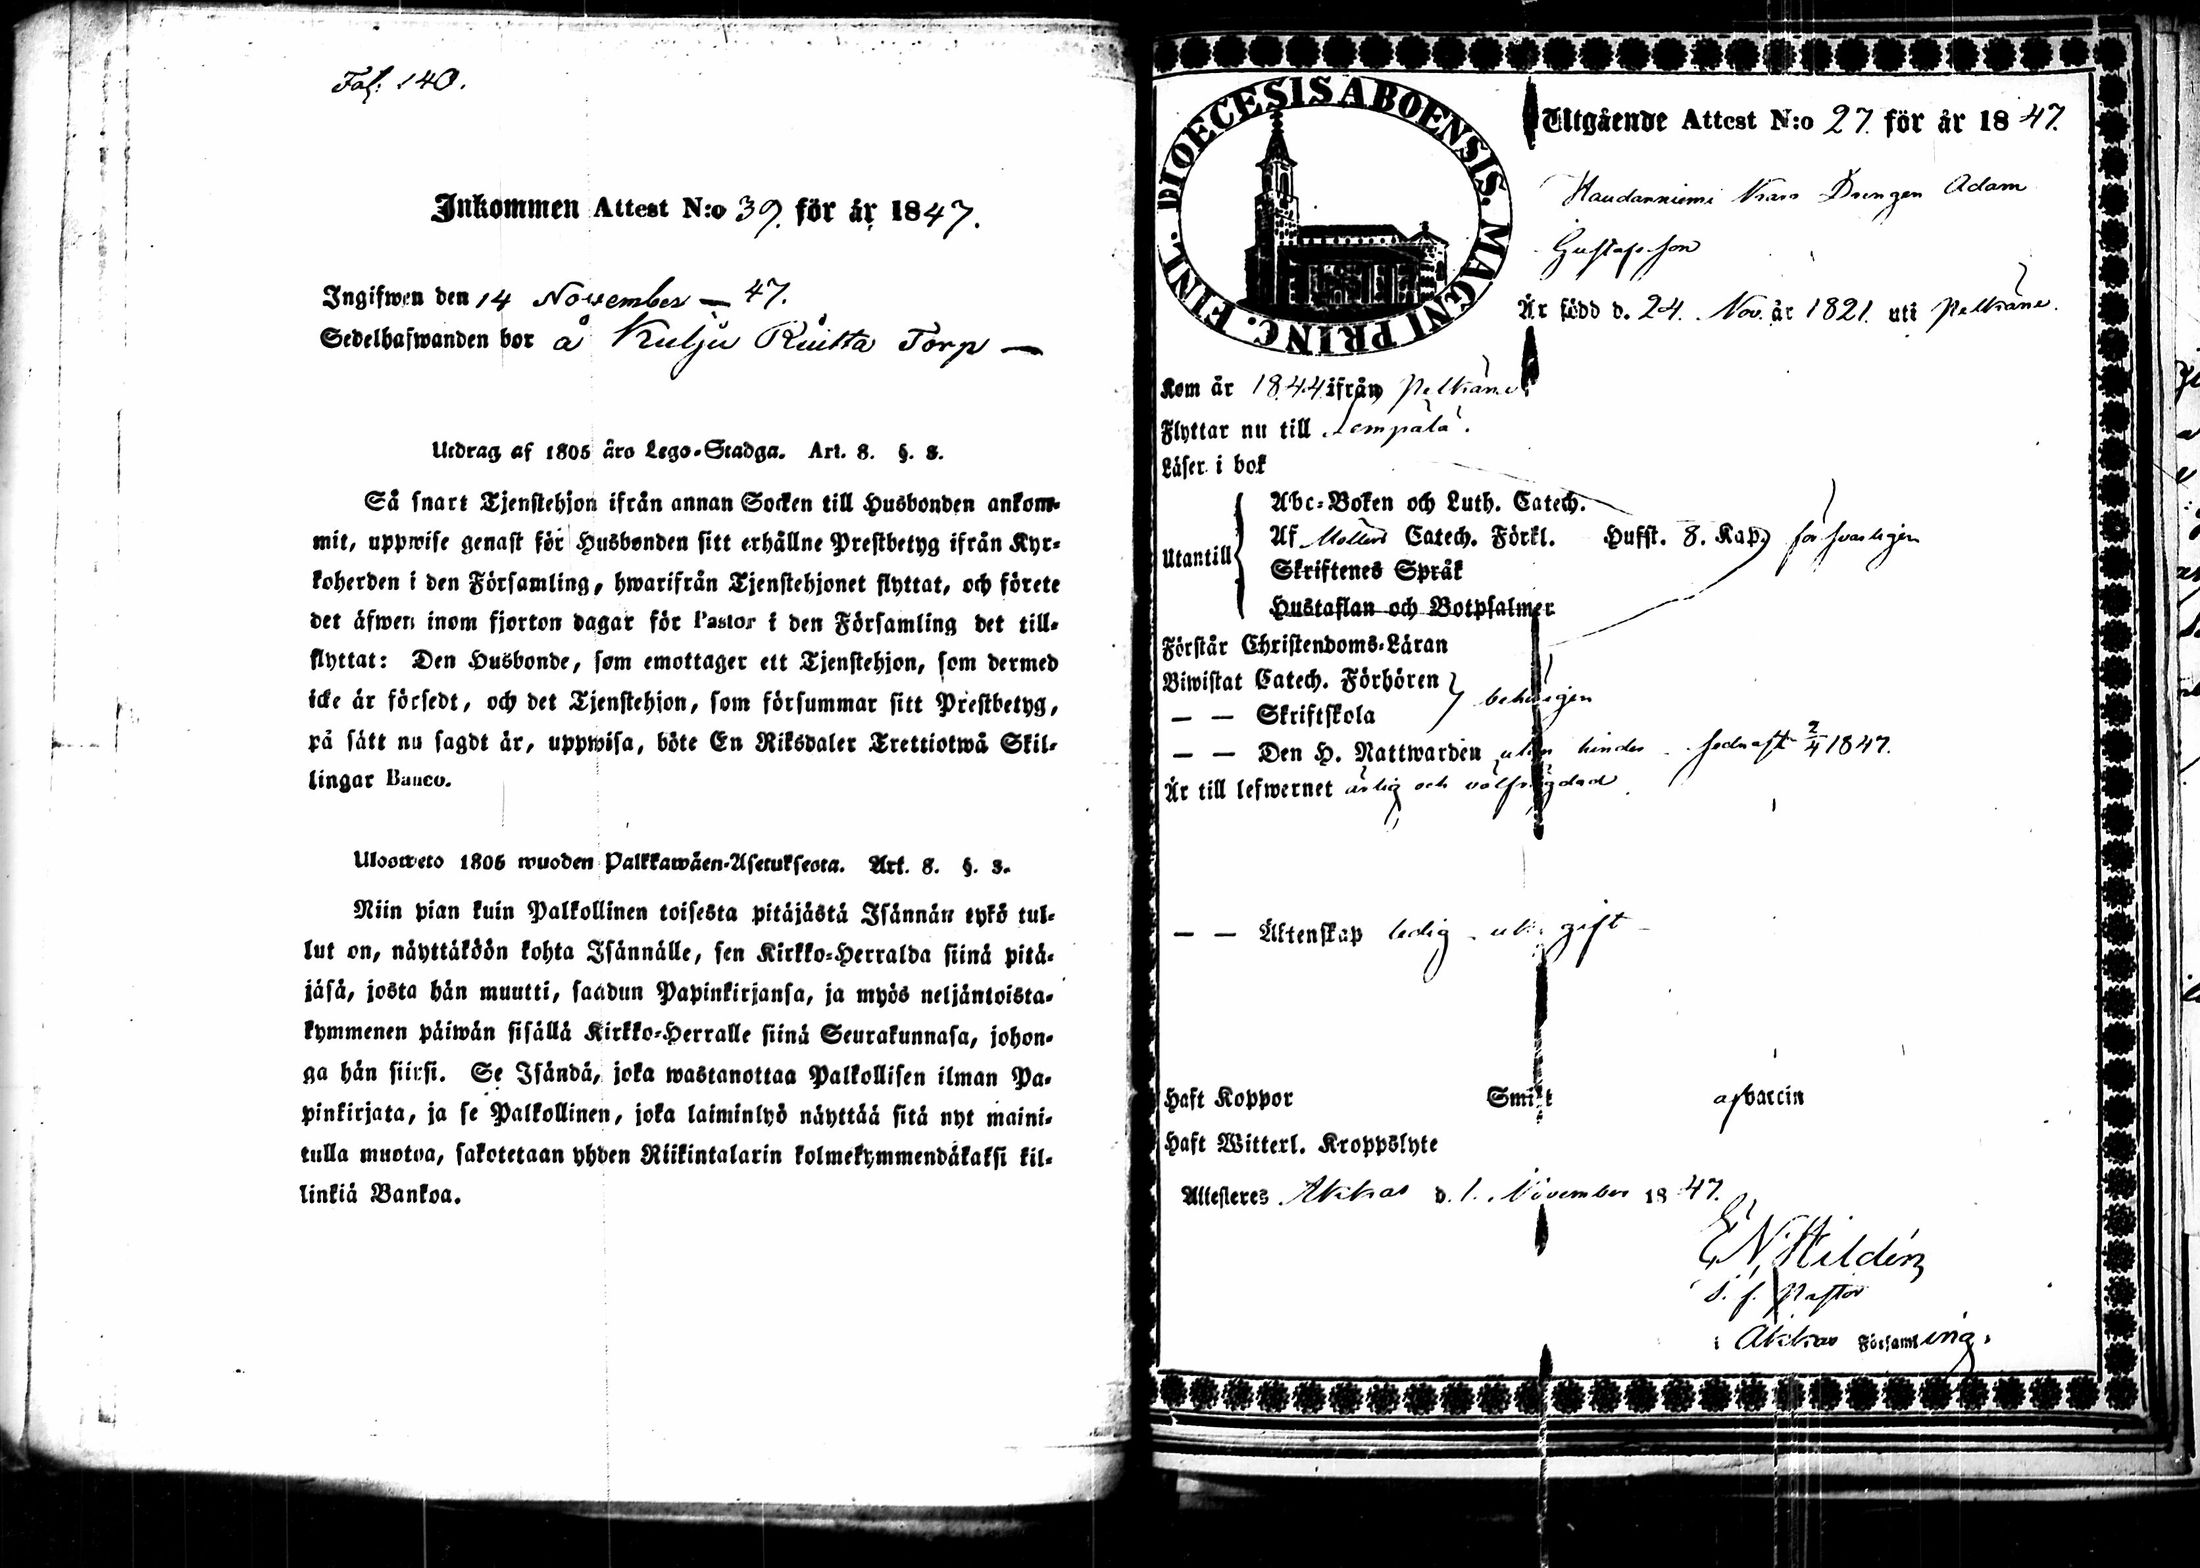 Fol. 140.
Inkommen Attest N:o 39. för år 1847.
Ingifwen den 14 November — 47.
Sedelhafwanden bor å Kulju Ruikka Torp —
Utdrag af 1805 års Lego-Stadga. Art. 8. §. 3.
Så snart Tjenstehjon ifrån annan Socken till Husbonden ankom-
mit, uppwise genast för Husbonden sitt erhållne Prestbetyg ifrån Kyr-
koherden i den Församling, hwarifrån Tjenstehjonet flyttat, och förete
det äfwen inom fjorton dagar för Pastor i den Församling det till-
flyttat: Den Husbonde, som emottager ett Tjenstehjon, som dermed
icke är försedt, och det Tjenstehjon, som försummar sitt Prestbetyg,
på sätt nu sagdt är, uppwisa, böte En Riksdaler Trettiotwå Skil-
lingar Banco.
Ulosweto 1805 wuoden Palkkawäen-Asetuksesta. Art. 8. §. 3.
Niin pian kuin Palkollinen toisesta pitäjästä Isännän tykö tul-
lut on, näyttäköön kohta Isännälle, sen Kirkko-Herralda siinä pitä-
jäsä, josta hän muutti, saadun Papinkirjansa, ja myös neljäntoista-
kymmenen päiwän sisällä Kirkko-Herralle siinä Seurakunnasa, johon-
ga hän siirsi. Se Isändä, joka wastanottaa Palkollisen ilman Pa-
pinkirjata, ja se Palkollinen, joka laiminlyö näyttää sitä nyt maini-
tulla muotoa, sakotetaan yhden Riikintalarin kolmekymmendäkaksi kil-
linkiä Bankoa.
DIOECESIS ABOENSIS. MAGNI PRINC. FINL.
Utgående Attest N:o 27. för år 1847.
Haudanniemi Drengen Adam
Gustafsson
Är född d. 24. Nov. år 1821. uti Pelkäne.
Kom år 1844 ifrån Pelkäne.
Flyttar nu till Lempälä.
Läser i bok
Abc-Boken och Luth. Catech.
Utantill Af Möllers Catech. Förkl. Hufst. 8. Kap. försvarligen
Skriftenes Språk
Hustaflan och Botpsalmer
Förstår Christendoms-Läran
Biwistat Catech. Förhören behörigen
— — Skriftskola
— — Den H. Nattwarden utan hinder sednast 2/4 1847.
Är till lefwernet ärlig och välfrägdad
— — Äktenskap ledig gift
Haft Koppor Smitt af vaccin
Haft Witterl. Kroppslyte
Attesteres Akkas d. 1. November 1847.
E N Hildén
v. f. Pastor
i Akkas Församling.